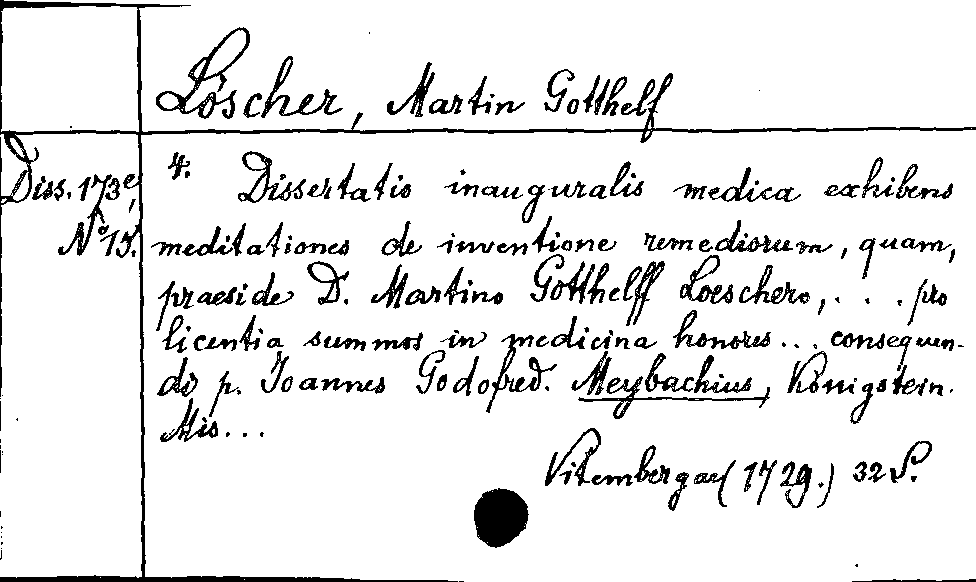 Löscher, Martin Gotthelf
Diss. 173e,
No 15.
4. Dissertatio inauguralis medica exhibens
meditationes de inventione remediorum, quam,
praeside D. Martino Gotthelff Loeschero, . . . pro
licentia summos in medicina honores ... consequen-
di p. Joannes Godofred. Meybachius, Königstein.
Mis...
Vitembergae (1729.) 32 S.